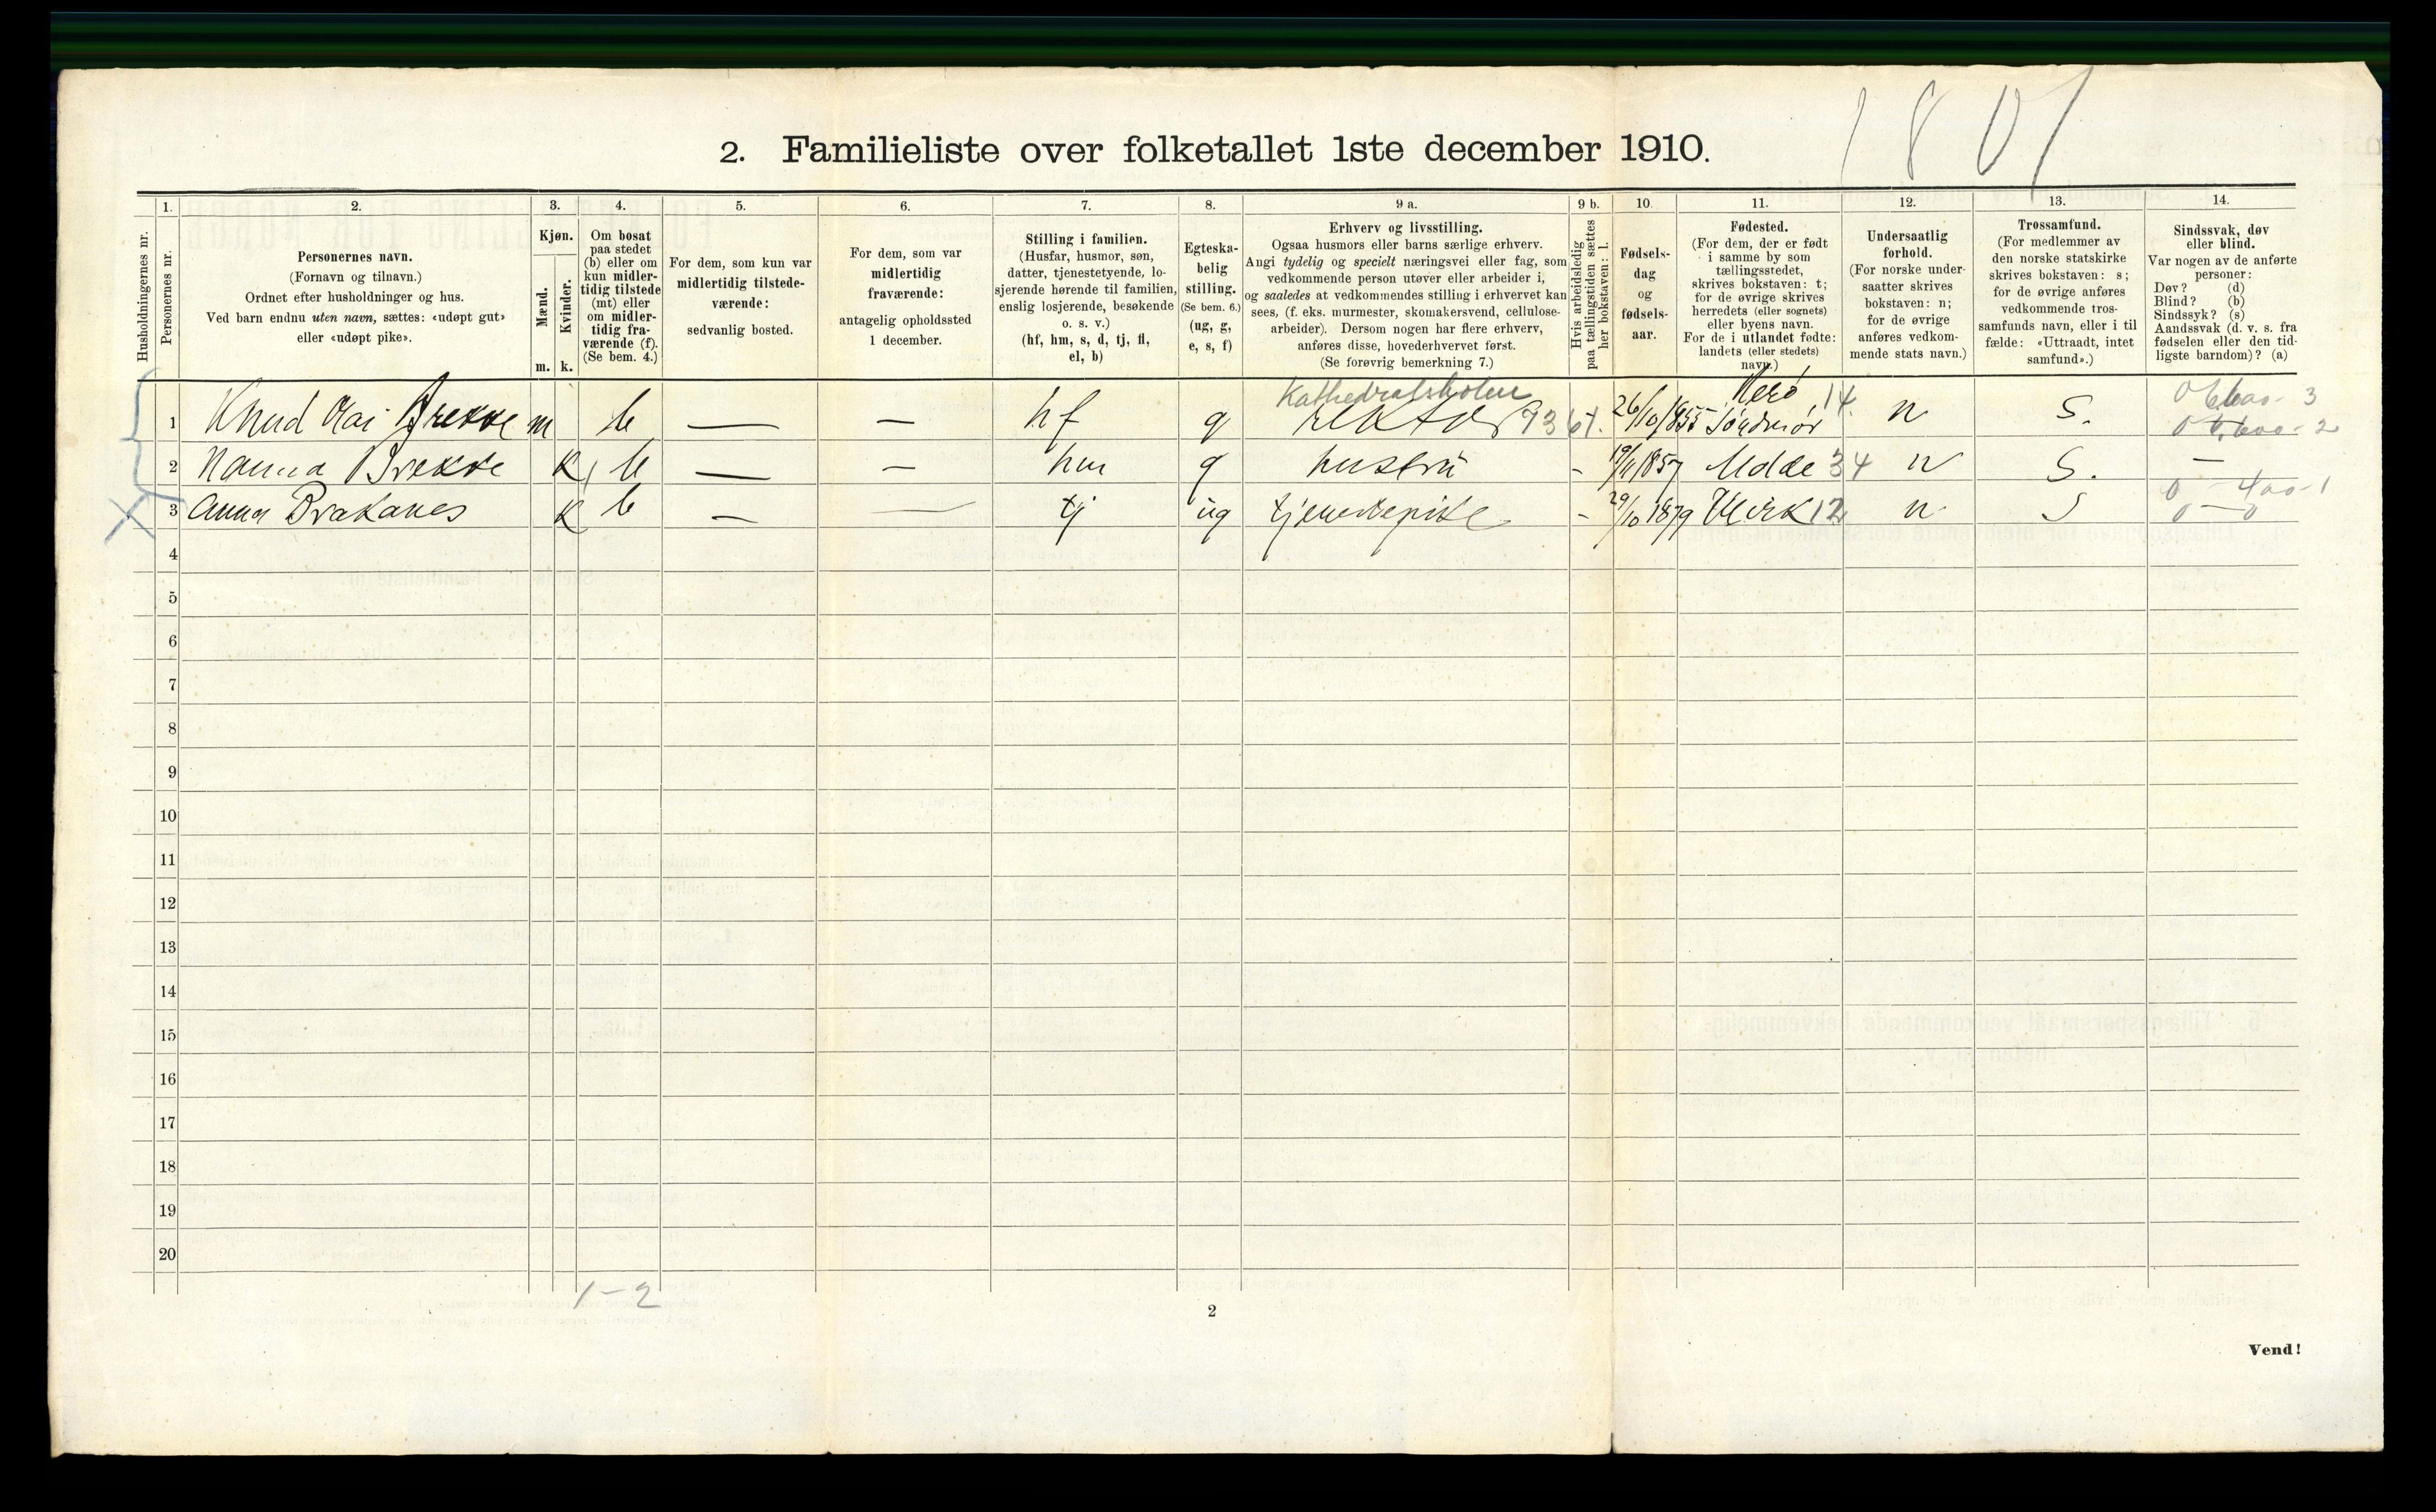 1801
2. Familieliste over folketallet 1ste december 1910.
Husholdningernes nr.
1.
Personernes nr.
2.
Personernes navn.
(Fornavn og tilnavn.)
Ordnet efter husholdninger og hus.
Ved barn endnu uten navn, sættes: «udøpt gut»
eller «udøpt pike».
3.
Kjøn.
Mænd.
m.
Kvinder.
k.
4.
Om bosat
paa stedet
(b) eller om
kun midler-
tidig tilstede
(mt) eller
om midler-
tidig fra-
værende (f).
(Se bem. 4.)
5.
For dem, som kun var
midlertidig tilstede-
værende:
sedvanlig bosted.
6.
For dem, som var
midlertidig
fraværende:
antagelig opholdssted
1 december.
7.
Stilling i familien.
(Husfar, husmor, søn,
datter, tjenestetyende, lo-
sjerende hørende til familien,
enslig losjerende, besøkende
o. s. v.)
(hf, hm, s, d, tj, fl,
el, b)
8.
Egteska-
belig
stilling.
(Se bem. 6.)
(ug, g,
e, s, f)
9 a.
Erhverv og livsstilling.
Ogsaa husmors eller barns særlige erhverv.
Angi tydelig og specielt næringsvei eller fag, som
vedkommende person utøver eller arbeider i,
og saaledes at vedkommendes stilling i erhvervet kan
sees, (f. eks. murmester, skomakersvend, cellulose-
arbeider). Dersom nogen har flere erhverv,
anføres disse, hovederhvervet først.
(Se forøvrig bemerkning 7.)
9 b.
Hvis arbeidsledig
paa tællingstiden sættes
her bokstaven: l.
10.
Fødsels-
dag
og
fødsels-
aar.
11.
Fødested.
(For dem, der er født
i samme by som
tællingsstedet,
skrives bokstaven: t;
for de øvrige skrives
herredets (eller sognets)
eller byens navn.
For de i utlandet fødte:
landets (eller stedets)
navn.)
12.
Undersaatlig
forhold.
(For norske under-
saatter skrives
bokstaven: n;
for de øvrige
anføres vedkom-
mende stats navn.)
13.
Trossamfund.
(For medlemmer av
den norske statskirke
skrives bokstaven: s;
for de øvrige anføres
vedkommende tros-
samfunds navn, eller i til
fælde: «Uttraadt, intet
samfund».)
14.
Sindssvak, døv
eller blind.
Var nogen av de anførte
personer:
Døv? (d)
Blind? (b)
Sindssyk? (s)
Aandssvak (d. v. s. fra
fødselen eller den tid-
ligste barndom)? (a)
Kathedralskolen
Herø 14
1 Knud Olai Brekke m b — — hf g rektor 26/10 1855 Søndmør n S.
2 Nanna Brekke k b — — hm g hustru - 19/11 1857 Molde 34 n S. —
3 Anna Brakanes k b — — tj ug tjenestepike - 29/10 1879 12 n S
4
5
6
7
8
9
10
11
12
13
14
15
16
17
18
19
20
1-2
2
Vend!